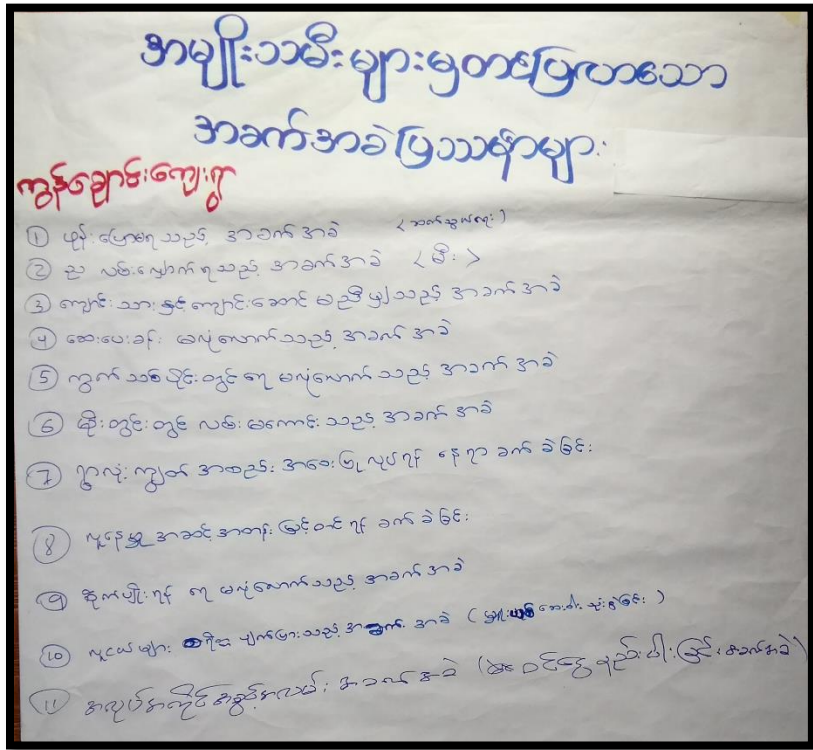 အမျိုးသမီးများမှတင်ပြလာသော
အခက်အခဲပြဿနာများ
ကွန်ချောင်းကျေးရွာ
၁ ဖုန်းပြောရသည့် အခက်အခဲ (ဆက်သွယ်ရေး)
2 ည လမ်းလျှောက်ရသည့် အခက်အခဲ <မီး>
3 ကျောင်းသားနှင့်ကျောင်းဆောင် မညီမျှသည့် အခက်အခဲ
4 ဆေးပေးခန်း မလုံလောက်သည့် အခက်အခဲ
5 ကွက်သစ်ပိုင်းတွင် ရေ မလုံလောက်သည့် အခက်အခဲ
6 မိုးတွင်းတွင် လမ်းမကောင်းသည့် အခက်အခဲ
7 ရွာလုံးကျွတ် အစည်းအဝေးပြုလုပ်ရန် နေရာ ခက်ခဲခြင်း
8 လူနေမှု အဆင့်အတန်း မြှင့်တင်ရန် ခက်ခဲခြင်း
9 စိုက်ပျိုးရန် ရေ မလုံလောက်သည့် အခက်အခဲ
10 လူငယ်များ ပျက်ပြားသည့် အခက်အခဲ ( ဆေးဝါး သုံးစွဲခြင်း )
11 အလုပ်အကိုင်အခွင့်အလမ်း အခက်အခဲ ( ဝင်ငွေနည်းပါးခြင်း အခက်အခဲ)